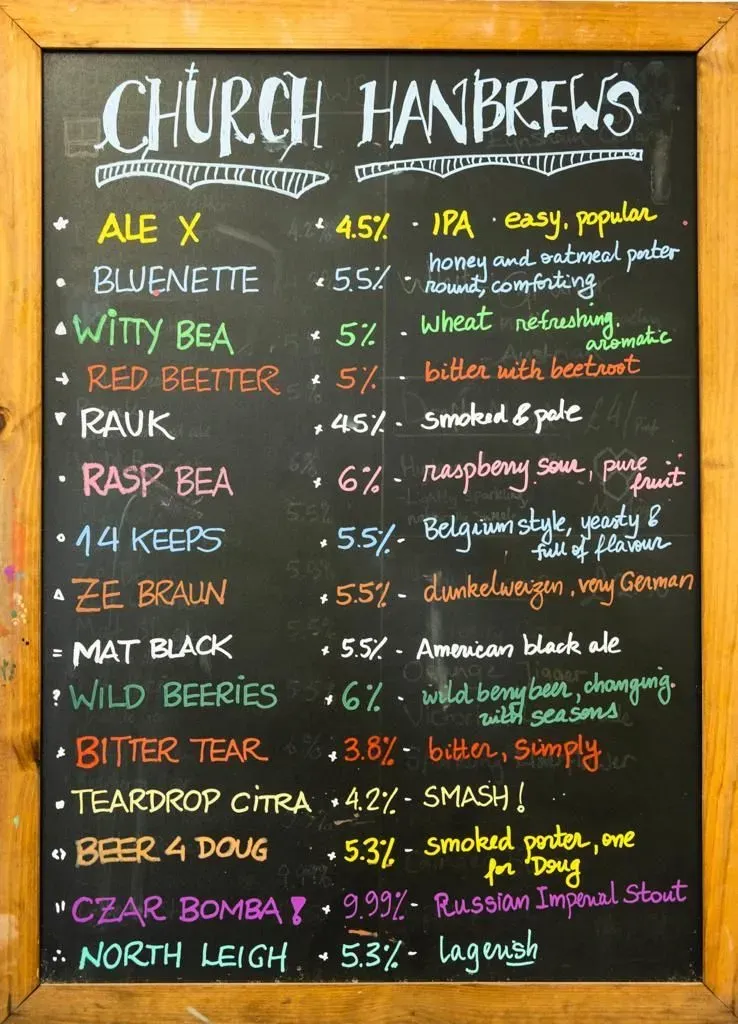 CHURCH HANBREWS
ALE X 4.5% - IPA · easy, popular
BLUENETTE 5.5% - honey and oatmeal porter
round, comforting
WITTY BEA 5% - wheat refreshing.
aromatic
RED BEETTER 5% - bitter with beetroot
RAUK 4.5% - smoked & pale
RASP BEA 6% - raspberry sour, pure
fruit
14 KEEPS 5.5% - Belgium style, yeasty &
full of flavour
ZE BRAUN 5.5% - dunkelweizen, very German
= MAT BLACK 5.5% - American black ale
? WILD BEERIES 6% - wild berry beer, changing
with seasons
BITTER TEAR 3.8% - bitter, simply
TEARDROP CITRA 4.2% - SMASH!
BEER 4 DOUG 5.3% - smoked porter, one
for Doug
" CZAR BOMBA! 9.99% - Russian Imperial Stout
∴ NORTH LEIGH 5.3% - lagerish